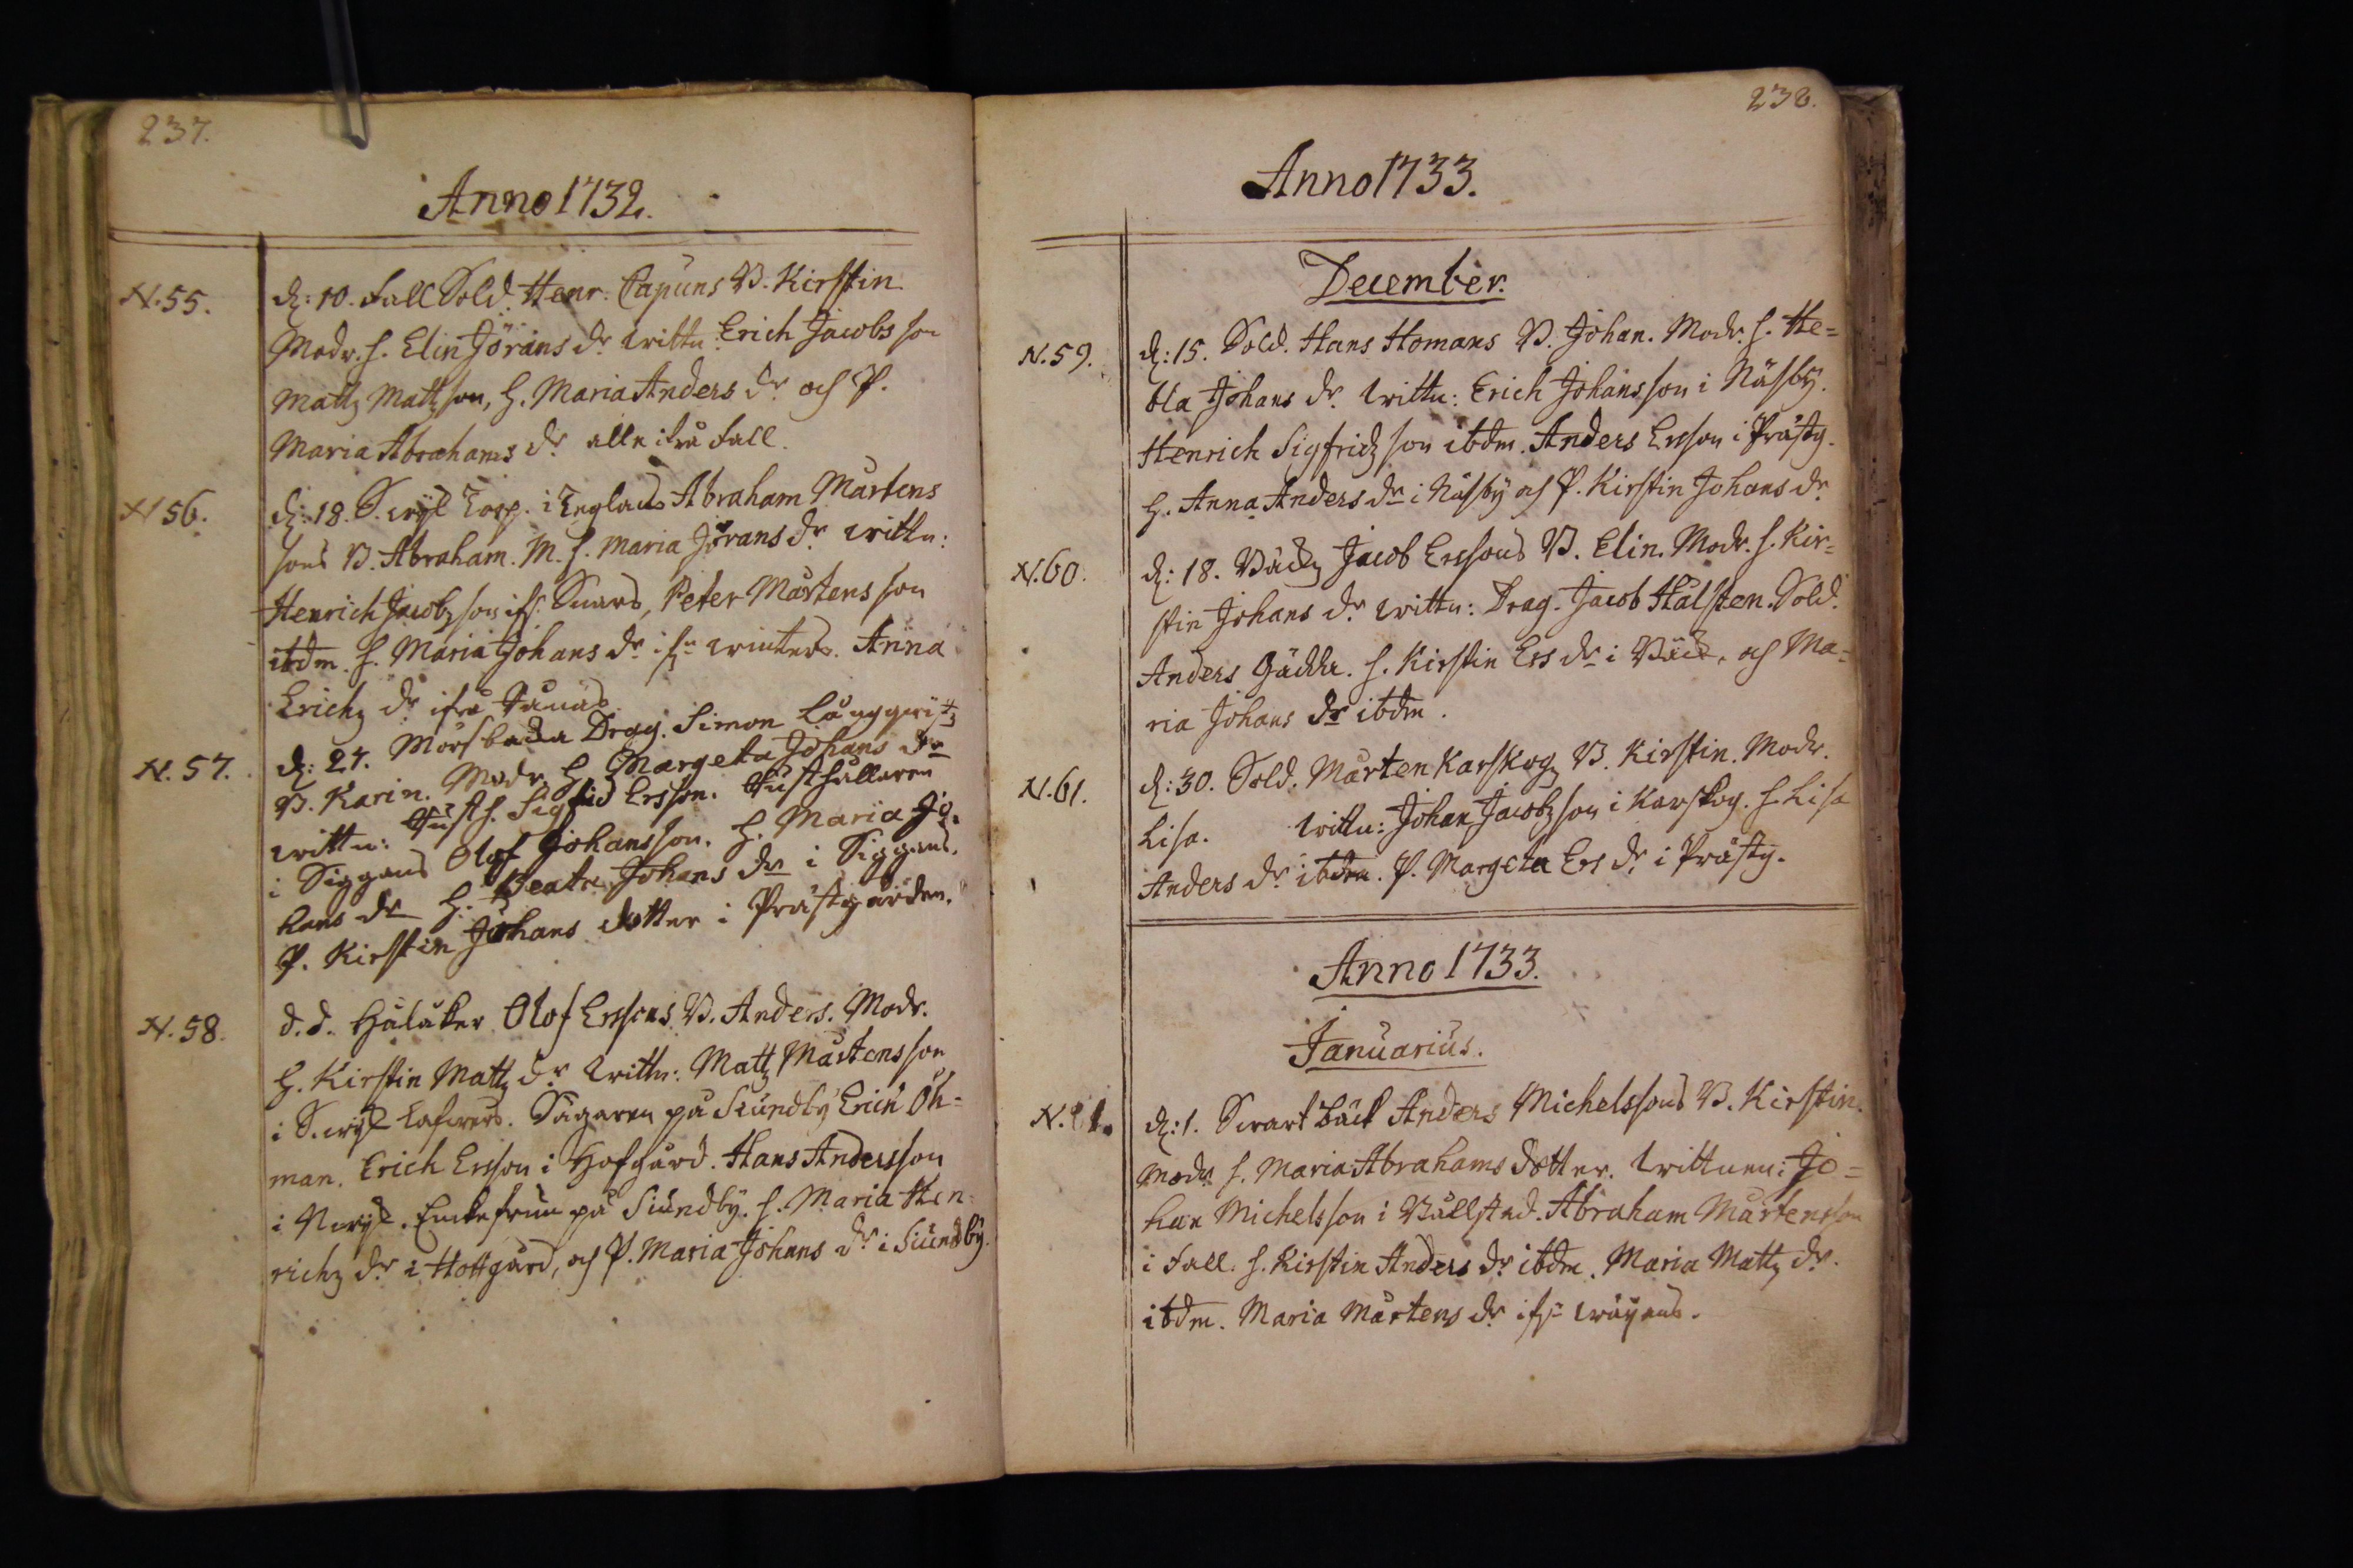 237.
Anno 1732.
N. 55.
d: 10. Fall Sold. Henr. Capuns B. Kirstin
Modr. h. Elin Jörans dr wittn: Erich Jacobs son
Mattz Mattzson, h. Maria Anders dr och P.
Maria Abrahams dr alle ifrå Fall.
N 56.
d: 18. S. wijk i Englans Abraham Mårtens
sons B. Abraham. M. h. Maria Jörans dr wittn:
Henrich Jacobzson Peter Mårtensson
ibdm. h. Maria Johans dr winters. Anna
Erichz dr ifrå
N. 57.
d: 27. Morsbacka Drag. Simon
B. Karin. Modr. H Margeta Johans dr
wittn: Rusth. Sigfrid Ersson. Rusthållaren
i Siggans Olof Johansson. H. Maria Jo-
hans dr H. Beata Johans dr i Siggans.
P. Kirstin Johans dotter i Prästgården.
N. 58.
d. d. Håläker Olof Erssons B. Anders. Modr.
H. Kirstin Mattz dr Wittn: Mattz Mårtensson
i S. wijk Sågaren på Siundby Erich Öh-
man. Erich Ersson i Hofgård. Hans Andersson
i Nwijk. Enkefrun på Siundby. h. Maria Hen-
richz dr i Hottgård, och P. Maria Johans dr i Siundby.
238.
Anno 1733.
December.
N. 59.
d: 15. Sold. Hans Homans B. Johan. Modr. h. He=
bla Johans dr. Wittn: Erich Johansson i Näsby.
Henrich Sigfridzson ibdm. Anders Ersson i Prästg.
H. Anna Anders dr i Näsby och P. Kirstin Johans dr
N. 60.
d: 18. Bäck Jacob Erssons B. Elin. Modr. h. Kir=
stin Johans dr wittn: Drag. Jacob Stålsten. Sold.
Anders Gädda. h. Kirstin Ers dr i Bäck, och Ma=
ria Johans dr ibdm.
N. 61.
d: 30. Sold. Mårten Karskogz B. Kirstin. Modr.
Lisa. Wittn: Johan Jacobzson i Karskog. h. Lisa
Anders dr ibdm. P. Margeta Ers dr i Prästg.
Anno 1733.
Januarius.
N. 1.
d: 1. Swartbäck Anders Michelssons B. Kirstin.
Modr. h. Maria Abrahams dotter. Wittnen: Jo=
han Michelsson i Bållstad. Abraham Mårtensson
i Fall. h. Kirstin Anders dr ibdm. Maria Mattz dr.
ibdm. Maria Mårtens dr